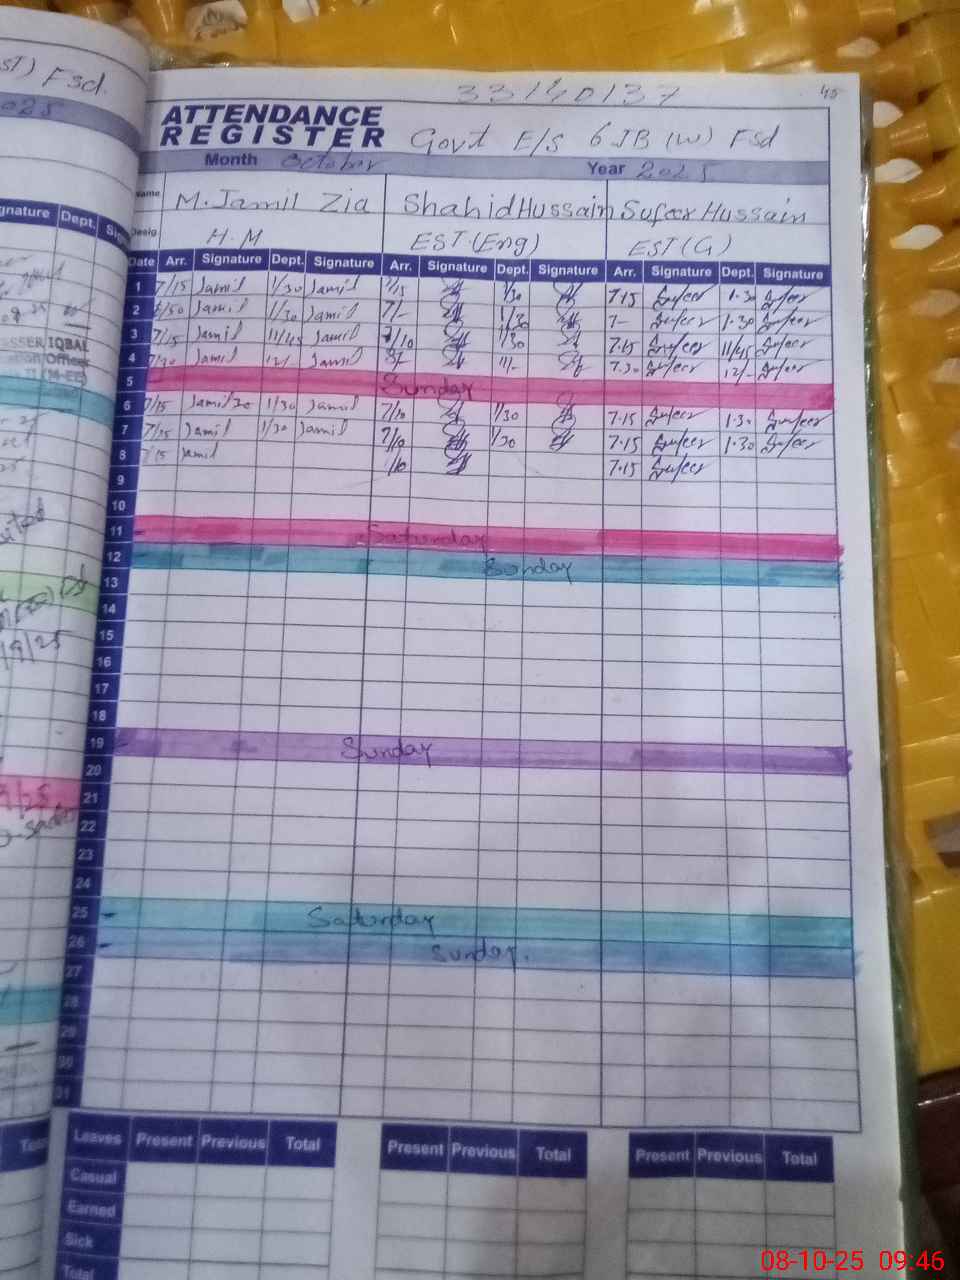 ST) Fsd.
2025
gnature Dept. Sign
SSER IQBAL
33140137
45
ATTENDANCE
REGISTER Govt E/S 6 JB (W) Fsd
Month October Year 2025
Name M. Jamil Zia Shahid Hussain Sufeer Hussain
Desig. H.M EST.(Eng) EST(G)
Date Arr. Signature Dept. Signature Arr. Signature Dept. Signature Arr. Signature Dept. Signature
1 7/15 Jamil 1/30 Jamil 7/15 1/30 7.15 Sufeer 1.30 Sufeer
2 6/50 Jamil 1/30 Jamil 7/- 1/30 7- Sufeer 1.30 Sufeer
3 7/15 Jamil 11/45 Jamil 7/10 1/30 7.15 Sufeer 11/45 Sufeer
4 7/30 Jamil 12/ Jamil 7.30 Sufeer 12/- Sufeer
5 Sunday
6 7/15 Jamil 1/30 Jamil 7/10 1/30 7.15 Sufeer 1.30 Sufeer
7 7/15 Jamil 1/30 Jamil 7/10 1/30 7.15 Sufeer 1.30 Sufeer
8 7/15 Jamil /10 7.15 Sufeer
9
10
11 Saturday
12 Sunday
13
14
15
16
17
18
19 Sunday
20
21
22
23
24
25 Saturday
26 Sunday.
27
28
29
30
31
Leaves Present Previous Total Present Previous Total Present Previous Total
Casual
Earned
Sick
Total
08-10-25 09:46